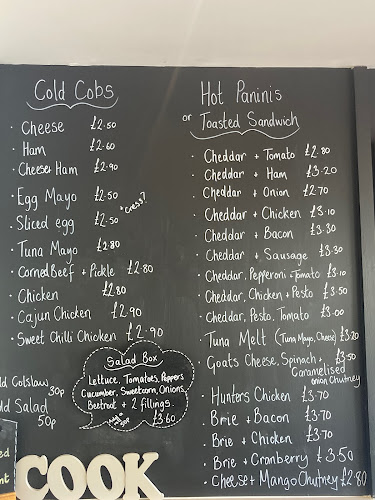 Cold Cobs
· Cheese £2.50
· Ham £2.60
· Cheese + Ham £2.90
· Egg Mayo £2.50
· Sliced egg £2.50 + cress?
· Tuna Mayo £2.80
· Corned Beef + Pickle £2.80
· Chicken £2.80
· Cajun Chicken £2.90
· Sweet Chilli Chicken £2.90
Coleslaw 30p
Salad 50p
Salad Box
Lettuce, Tomatoes, Peppers
Cucumber, Sweetcorn, Onions,
Beetroot + 2 fillings.
£3.60
COOK
Hot Paninis
or Toasted Sandwich
· Cheddar + Tomato £2.80
· Cheddar + Ham £3.20
· Cheddar + Onion £2.70
· Cheddar + Chicken £3.10
· Cheddar + Bacon £3.30
· Cheddar + Sausage £3.30
· Cheddar, Pepperoni + Tomato £3.10
· Cheddar, Chicken + Pesto £3.50
· Cheddar, Pesto, Tomato £3.00
· Tuna Melt (Tuna Mayo, Cheese) £3.20
· Goats Cheese, Spinach + £3.50
Caramelised
onion Chutney
· Hunters Chicken £3.70
· Brie + Bacon £3.70
· Brie + Chicken £3.70
· Brie + Cranberry £3.50
· Cheese + Mango Chutney £2.80